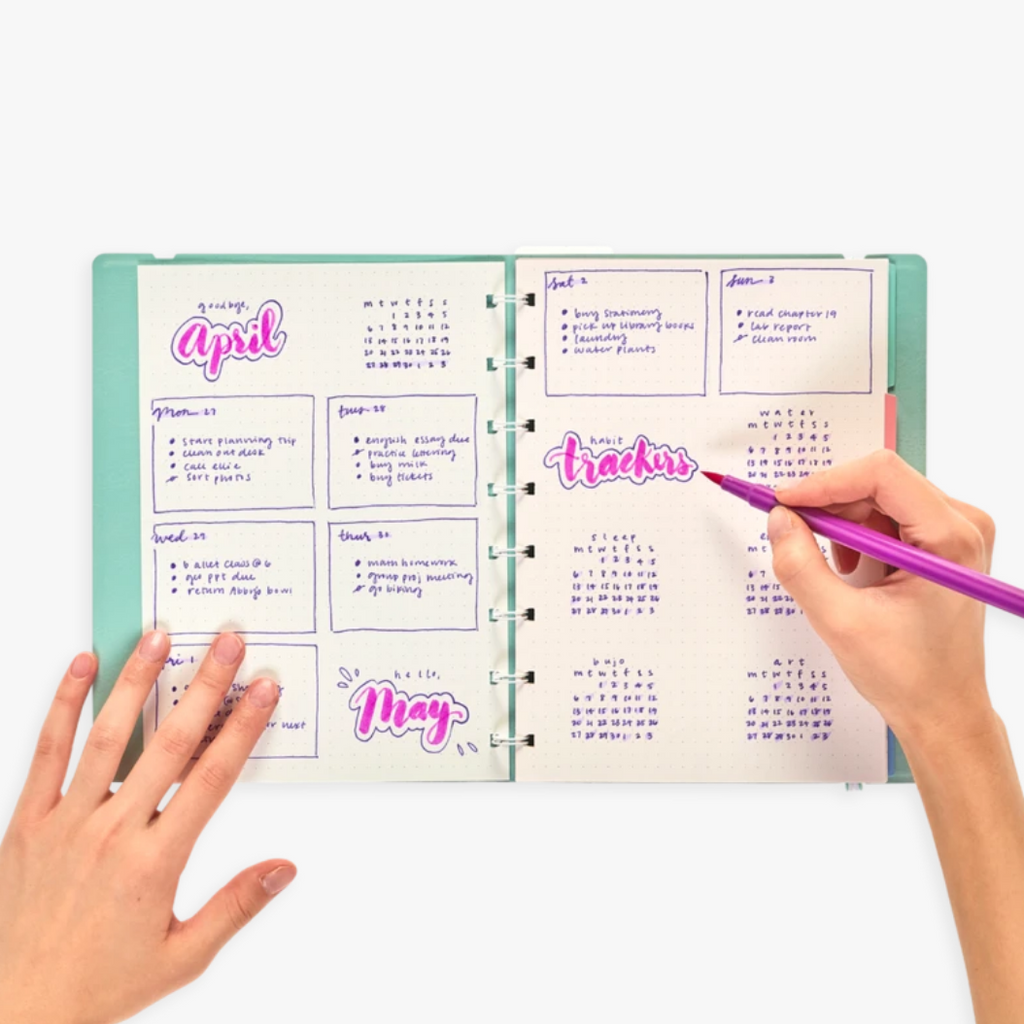 goodbye,
April
m t w t f s s
1 2 3 4 5
6 7 8 9 10 11 12
13 14 15 16 17 18 19
20 21 22 23 24 25 26
27 28 29 30 1 2 3
mon 27
start planning trip
clean out desk
call ellie
sort photos
tues 28
english essay due
practice lettering
buy milk
buy tickets
wed 29
ballet class @ 6
gov ppt due
return Abby's bowl
thus 30
math homework
group proj meeting
go biking
fri 1
next
hello,
May
sat 2
buy stationery
pick up library books
laundry
water plants
sun 3
read chapter 19
lab report
clean room
habit
trackers
water
m t w t f s s
1 2 3 4 5
6 7 8 9 10 11 12
13 14 15 16 17 18 19
20 21
sleep
m t w t f s s
1 2 3 4 5
6 7 8 9 10 11 12
13 14 15 16 17 18 19
20 21 22 23 24 25 26
27 28 29 30 1 2 3
m t
6 7
13 14
20 21 22
27 28 29 30
bujo
m t w t f s s
1 2 3 4 5
6 7 8 9 10 11 12
13 14 15 16 17 18 19
20 21 22 23 24 25 26
27 28 29 30 1 2 3
art
m t w t f s s
1 2 3 4 5
6 7 8 9 10 11 12
13 14 15 16 17 18 19
20 21 22 23 24 25 26
27 28 29 30 1 2 3